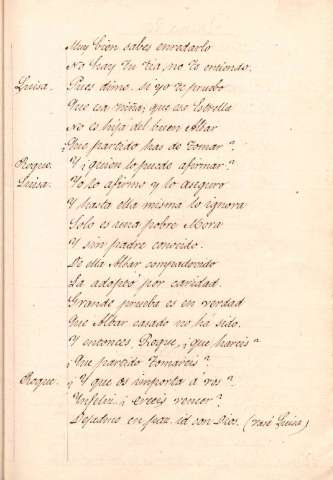 Muy bien sabes enredarlo
No hay tu tia, no te entiendo.
Luisa. Pues dime, si yo te pruebo
Que esa niña, que esa Estrella
No es hija del buen Albar
¿Que partido has de tomar?
Roque. Y ¿quien lo puede afirmar?
Luisa. Yo lo afirmo y lo aseguro
Y hasta ella misma lo ignora
Solo es una pobre Mora
Y sin padre conocido.
De ella Albar compadecido
La adoptó por caridad.
Grande prueba es en verdad
Que Albar casado no ha sido.
Y entonces, Roque, ¿que hareis?
¿Que partido tomareis?
Roque. ¿Y que os importa á vos?
Infeliz. ¿creeis vencer?
Dejadme en paz, id con Dios. (vase Luisa)